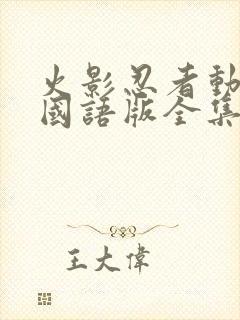 火影忍者動
國語版全集
王大偉